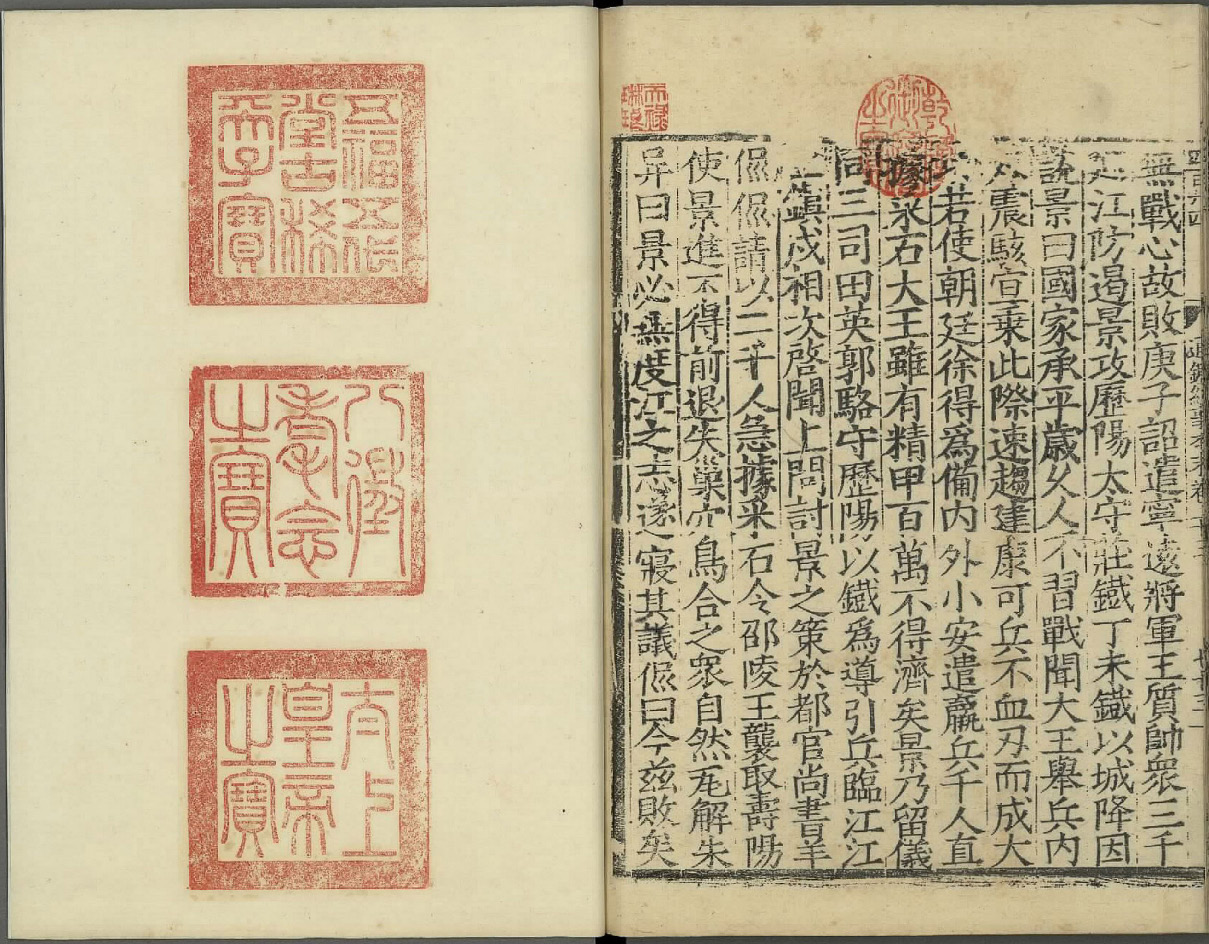 四百六四
通鑑紀事本末卷
無戰心故敗庚子詔遣寧遠將軍王質帥衆三千
巡江防遏景攻歷陽太守莊鐵丁未鐵以城降因
說景曰國家承平歲久人不習戰聞大王舉兵內
外震駭宜乗此際速趨建康可兵不血刃而成大
功若使朝廷徐得爲備內外小安遣羸兵千人直
據采石大王雖有精甲百萬不得濟矣景乃留儀
同三司田英郭駱守歷陽以鐵爲導引兵臨江江
上鎮戍相次啓聞上問討景之策於都官尚書羊
侃侃請以二千人急據采石令邵陵王襲取壽陽
使景進不得前退失巢穴烏合之衆自然瓦解朱
异曰景必無度江之志遂寢其議侃曰今茲敗矣
乾隆御覽之寶
天祿琳琅
五福五代
堂古稀
天子寶
八徵
耄念
之寶
太上
皇帝
之寶